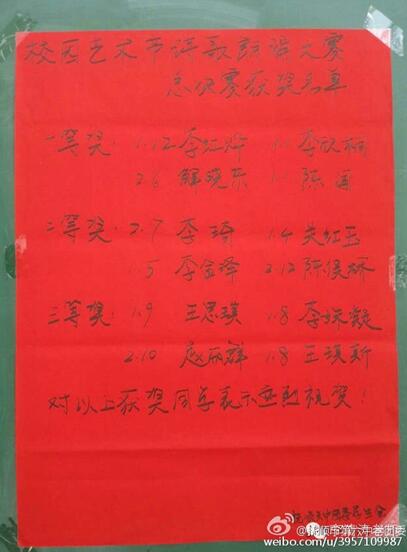 校园艺术节诗歌朗诵大赛
总决赛获奖名单
一等奖: 1.12 李红烨 1.1 李欣楠
2.6 解晓东 1.1 陈
二等奖: 2.7 李琦 1.4 关红玉
5 李金泽 2.12 陈俊桥
三等奖: 1.9 王思琪 1.8 李姝凝
2.10 赵丽群 1.8 王琪斯
对以上获奖同学表示热烈祝贺!
学生会
中老团委
weibo.com/u/3957109881